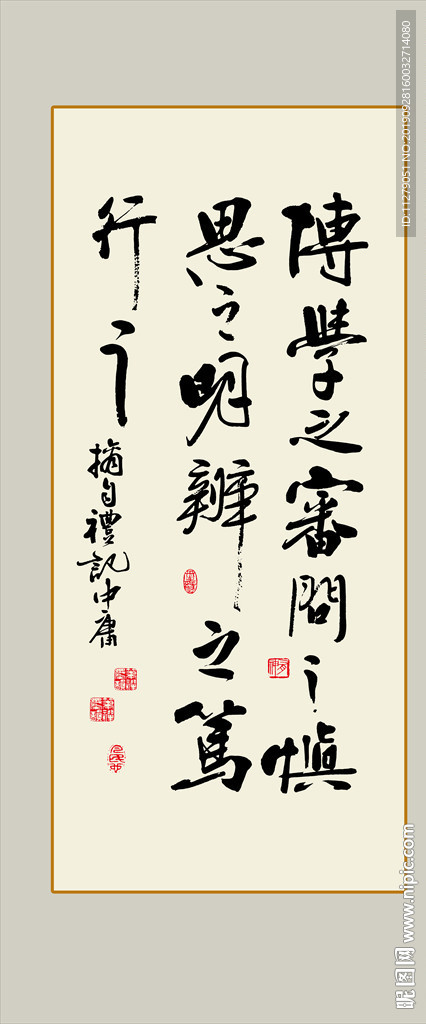 博學之審問之慎
思之明辨之篤
行之
摘自禮記中庸
ID:11279051 NO:20190928160032714080
昵图网 www.nipic.com